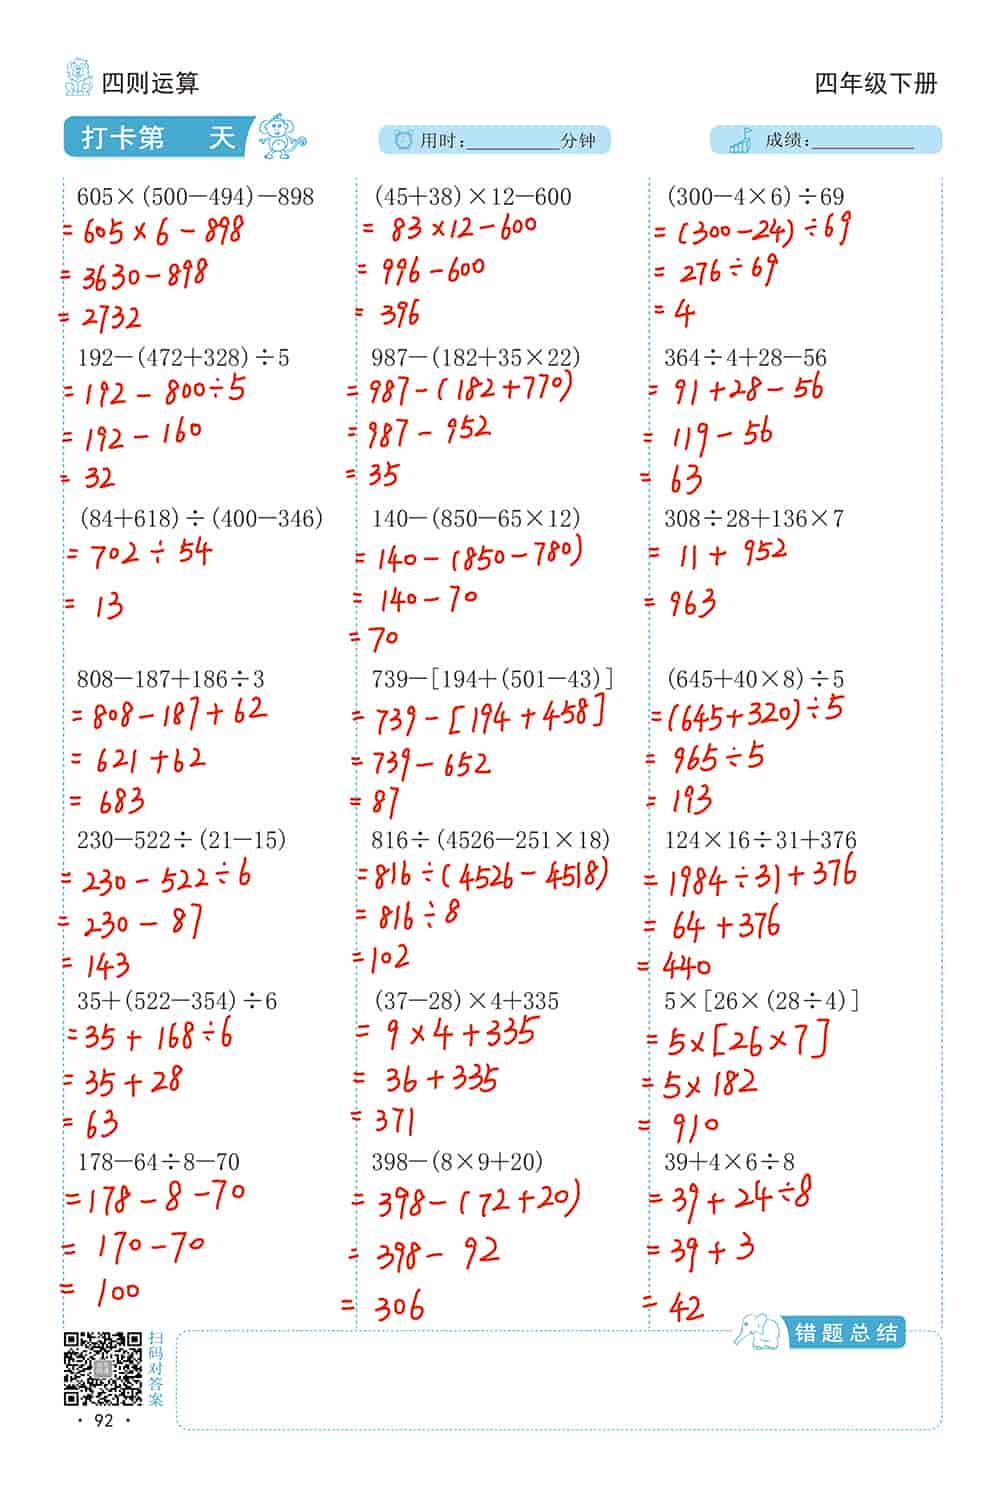 四则运算
四年级下册
打卡第 天
用时:__________分钟
成绩:__________
605×(500−494)−898
=605×6−898
=3630−898
=2732
(45+38)×12−600
=83×12−600
=996−600
=396
(300−4×6)÷69
=(300−24)÷69
=276÷69
=4
192−(472+328)÷5
=192−800÷5
=192−160
=32
987−(182+35×22)
=987−(182+770)
=987−952
=35
364÷4+28−56
=91+28−56
=119−56
=63
(84+618)÷(400−346)
=702÷54
=13
140−(850−65×12)
=140−(850−780)
=140−70
=70
308÷28+136×7
=11+952
=963
808−187+186÷3
=808−187+62
=621+62
=683
739−[194+(501−43)]
=739−[194+458]
=739−652
=87
(645+40×8)÷5
=(645+320)÷5
=965÷5
=193
230−522÷(21−15)
=230−522÷6
=230−87
=143
816÷(4526−251×18)
=816÷(4526−4518)
=816÷8
=102
124×16÷31+376
=1984÷31+376
=64+376
=440
35+(522−354)÷6
=35+168÷6
=35+28
=63
(37−28)×4+335
=9×4+335
=36+335
=371
5×[26×(28÷4)]
=5×[26×7]
=5×182
=910
178−64÷8−70
=178−8−70
=170−70
=100
398−(8×9+20)
=398−(72+20)
=398−92
=306
39+4×6÷8
=39+24÷8
=39+3
=42
错题总结
扫码对答案
·92·